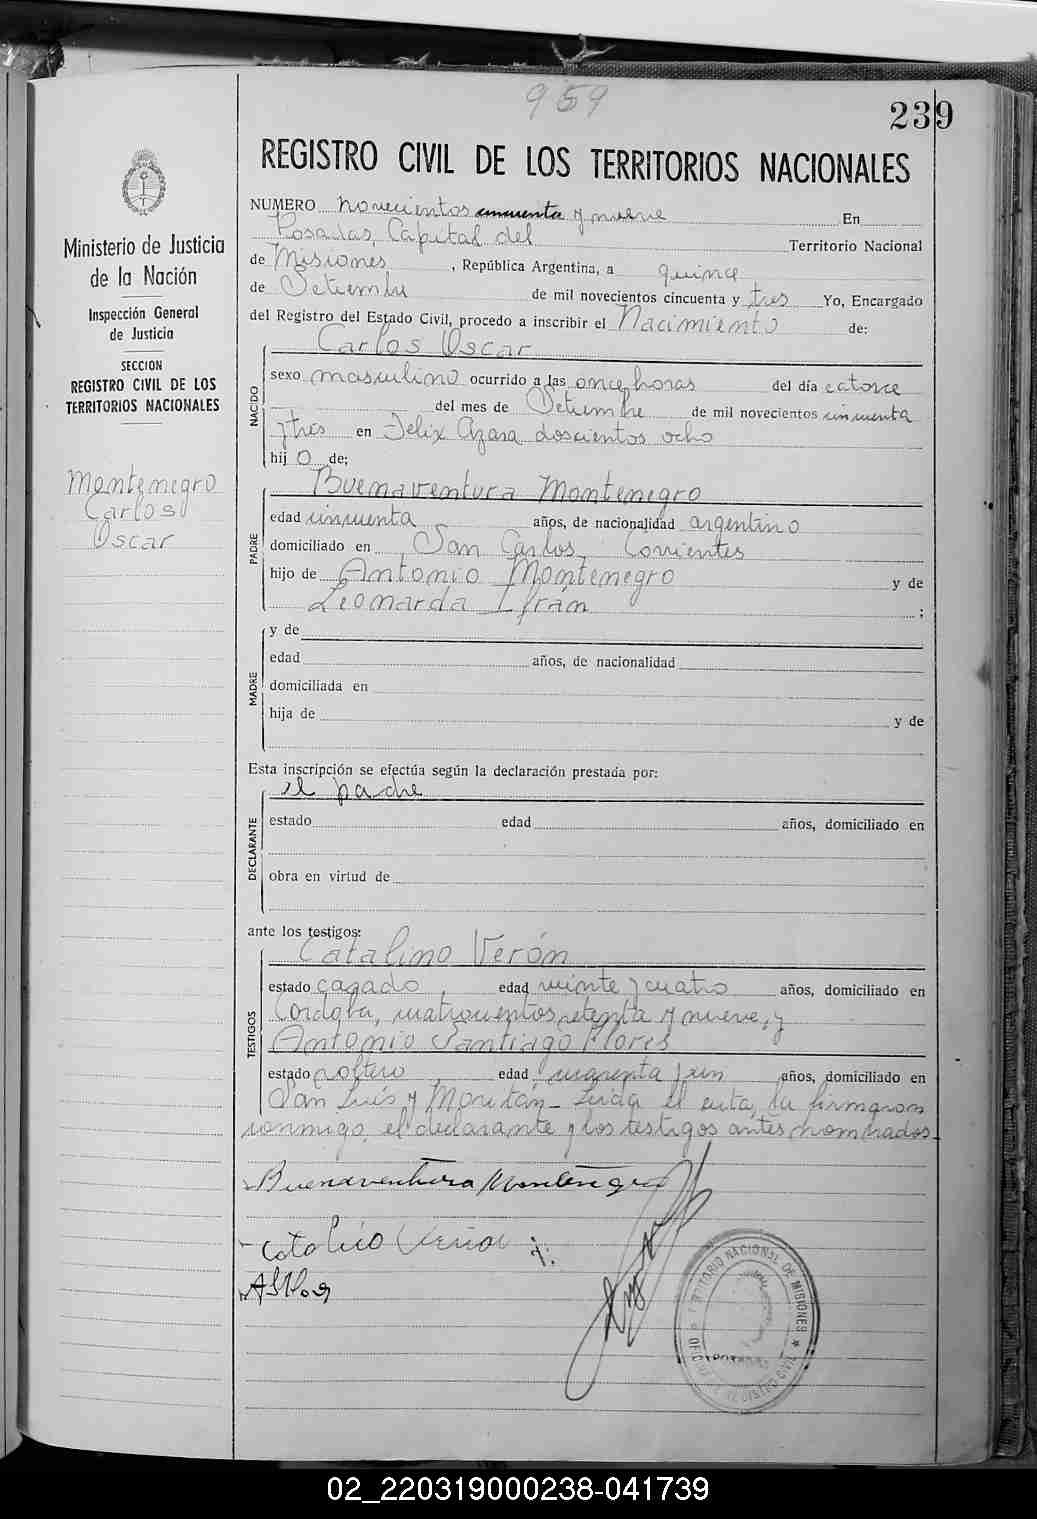 959
239
REGISTRO CIVIL DE LOS TERRITORIOS NACIONALES
Ministerio de Justicia
de la Nación
Inspección General
de Justicia
SECCION
REGISTRO CIVIL DE LOS
TERRITORIOS NACIONALES
Montenegro
Carlos
Oscar
NUMERO novecientos cincuenta y nueve En
Posadas, Capital del Territorio Nacional
de Misiones, República Argentina, a quince
de Setiembre de mil novecientos cincuenta y tres Yo, Encargado
del Registro del Estado Civil, procedo a inscribir el Nacimiento de:
Carlos Oscar
NACIDO
sexo masculino ocurrido a las once horas del día catorce
del mes de Setiembre de mil novecientos cincuenta
y tres en Felix Azara doscientos ocho
hijo de;
Buenaventura Montenegro
PADRE
edad cincuenta años, de nacionalidad argentino
domiciliado en San Carlos, Corrientes
hijo de Antonio Montenegro y de
Leonarda Ifrán ;
MADRE
y de
edad años, de nacionalidad
domiciliada en
hija de y de
Esta inscripción se efectúa según la declaración prestada por:
el padre
DECLARANTE
estado edad años, domiciliado en
obra en virtud de
ante los testigos:
Catalino Verón
TESTIGOS
estado casado, edad veinte y cuatro años, domiciliado en
Cordoba, cuatrocientos setenta y nueve, y
Antonio Santiago Flores
estado soltero, edad cuarenta y un años, domiciliado en
San Luis y Moritán_ Leida el acta, la firmaron
conmigo, el declarante y los testigos antes nombrados_
Buenaventura Montenegro
Catalino Veron
TERRITORIO NACIONAL DE MISIONES
OFICINA DE REGISTRO CIVIL
POSADAS
02_220319000238-041739